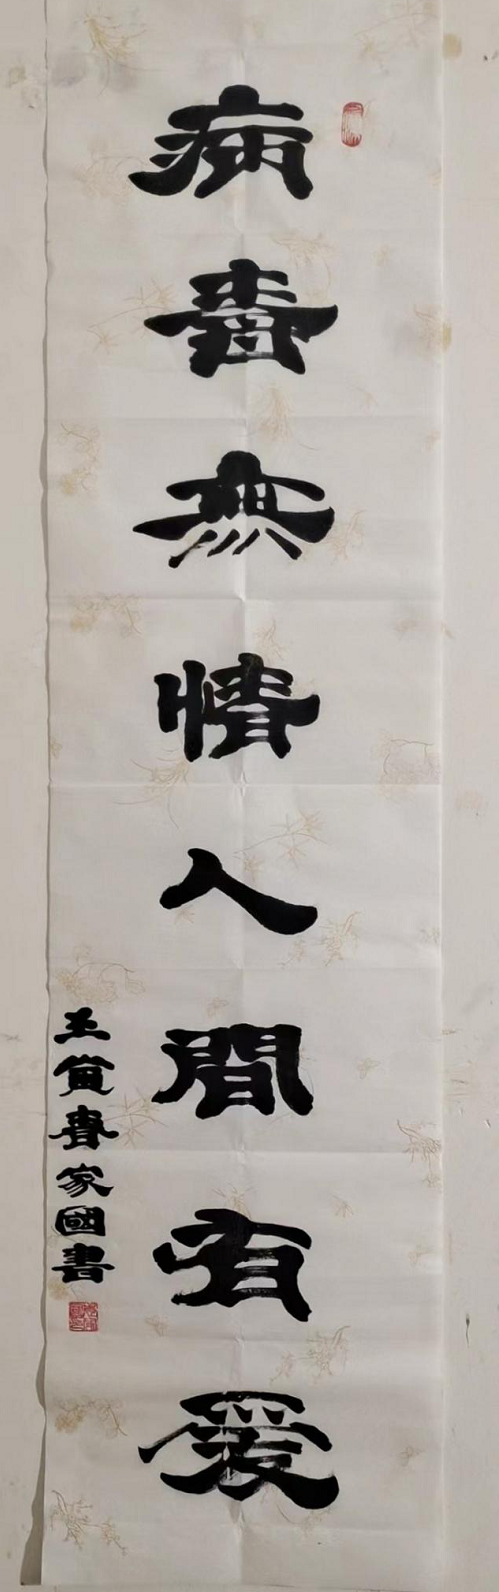 病毒無情人間有愛
壬寅春家國書